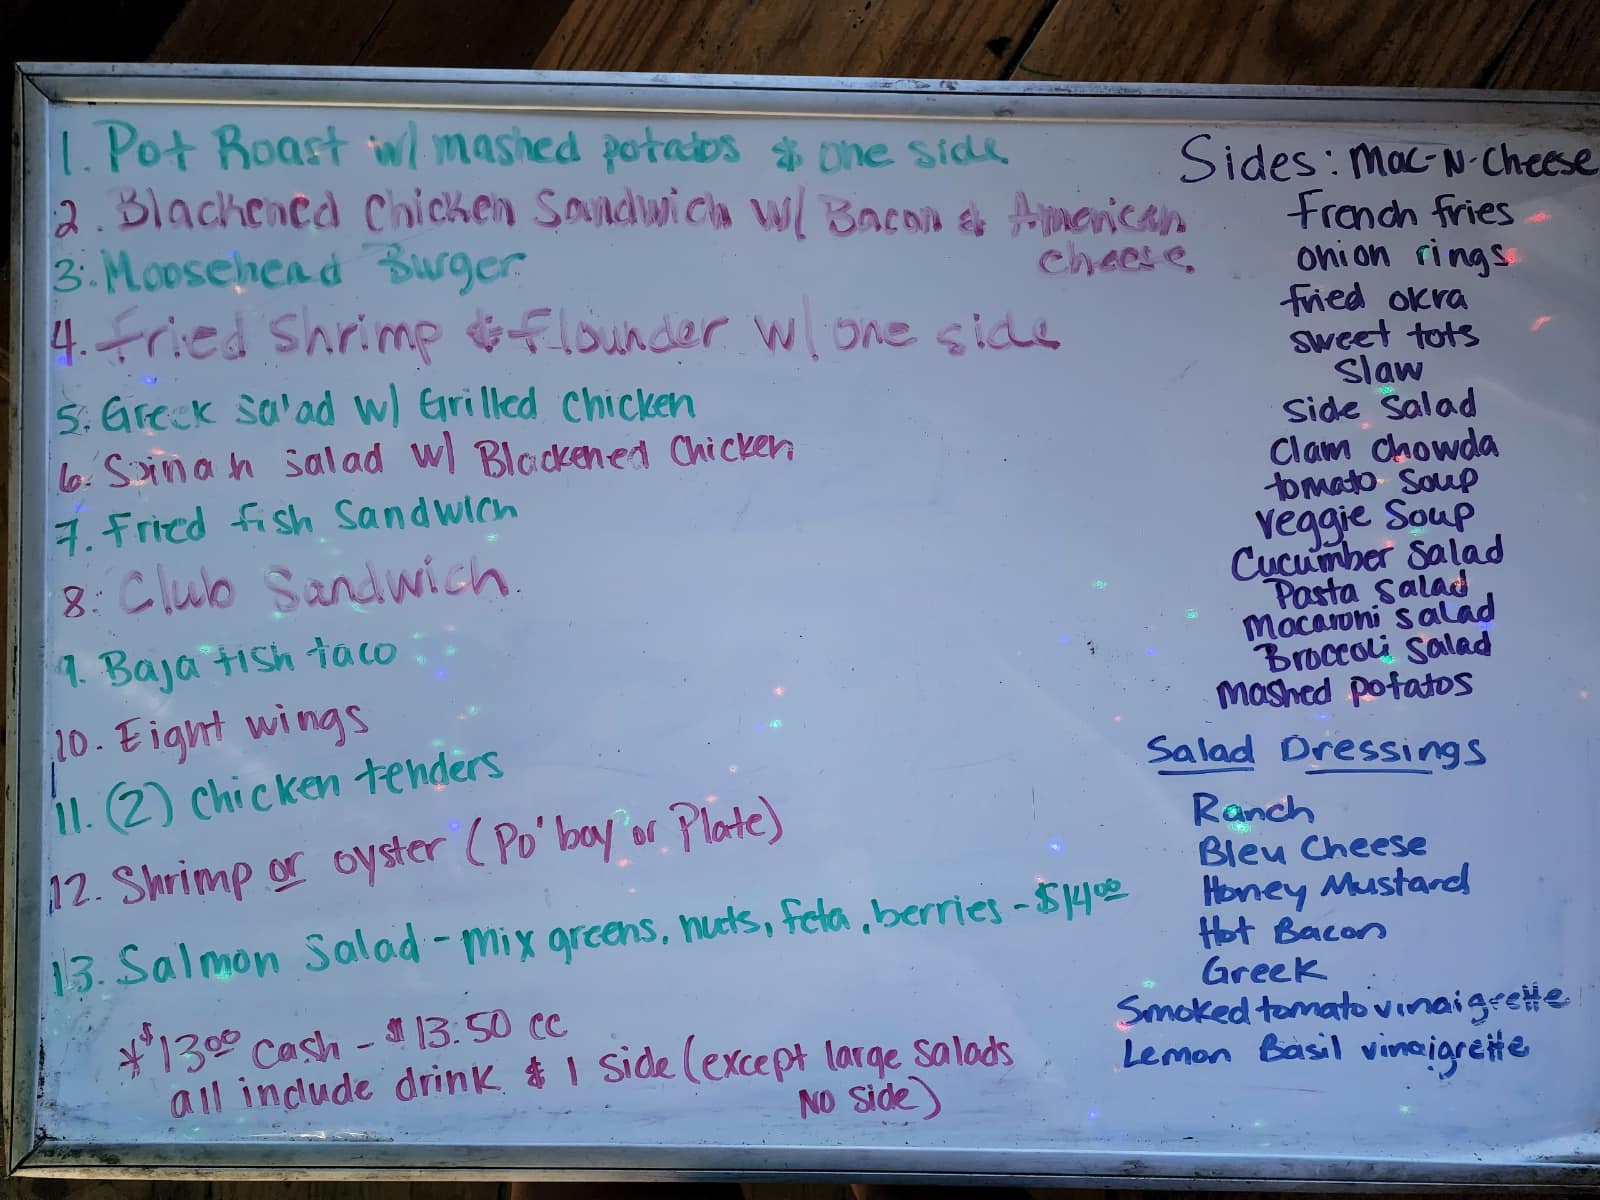 1. Pot Roast w/ mashed potatos & one side
2. Blackened Chicken Sandwich w/ Bacon & American
cheese
3. Moosehead Burger
4. Fried Shrimp & flounder w/ one side
5. Greek Salad w/ Grilled Chicken
6. Spinah Salad w/ Blackened Chicken
7. Fried fish Sandwich
8. Club Sandwich
9. Baja fish taco
10. Eight wings
11. (2) Chicken tenders
12. Shrimp or oyster (Po' boy or Plate)
13. Salmon Salad - mix greens, nuts, feta, berries - $14.00
*$13.00 cash - $13.50 cc
all include drink & 1 side (except large Salads
NO side)
Sides: Mac-N-Cheese
French fries
onion rings
fried okra
sweet tots
Slaw
Side Salad
Clam Chowda
tomato Soup
Veggie Soup
Cucumber Salad
Pasta Salad
Macaroni Salad
Broccoli Salad
Mashed potatos
Salad Dressings
Ranch
Bleu Cheese
Honey Mustard
Hot Bacon
Greek
Smoked tomato vinaigrette
Lemon Basil vinaigrette